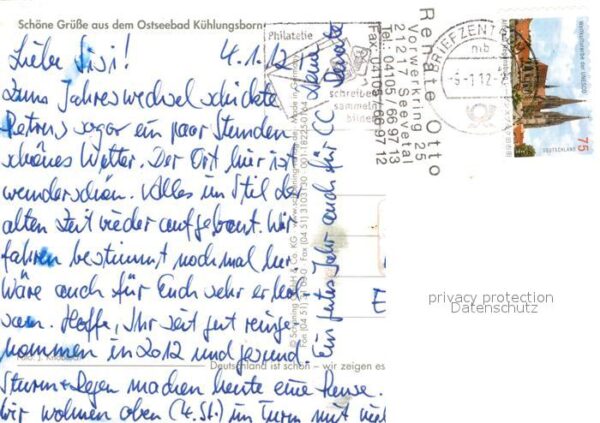 Schöne Grüße aus dem Ostseebad Kühlungsborn
4.1.12
Liebe Sisi!
Zum Jahreswechsel schickte
Petrus sogar ein paar Stunden
schönes Wetter. Der Ort hier ist
wunderschön. Alles im Stil der
alten Zeit wieder aufgebaut. Wir
fahren bestimmt nochmal her
Wäre auch für Euch sehr erhol
sam. Hoffe, Ihr seit gut reinge
kommen in 2012 und gesund.
Deutschland ist schön – wir zeigen es
Sturm + Regen machen heute eine Pause.
Wir wohnen oben (4. St.) im Turm mit viel
Ein gutes Jahr auch für CC Deine
Renate
Philatelie
schreiben
sammeln
Renate Otto
Vorwerkring 25
21217 Seevetal
Tel.: 04105 / 66 97 13
Fax: 04105 / 66 97 12
BRIEFZENTRUM
mb
-5-1 12-
DEUTSCHLAND
75
privacy protection
Datenschutz